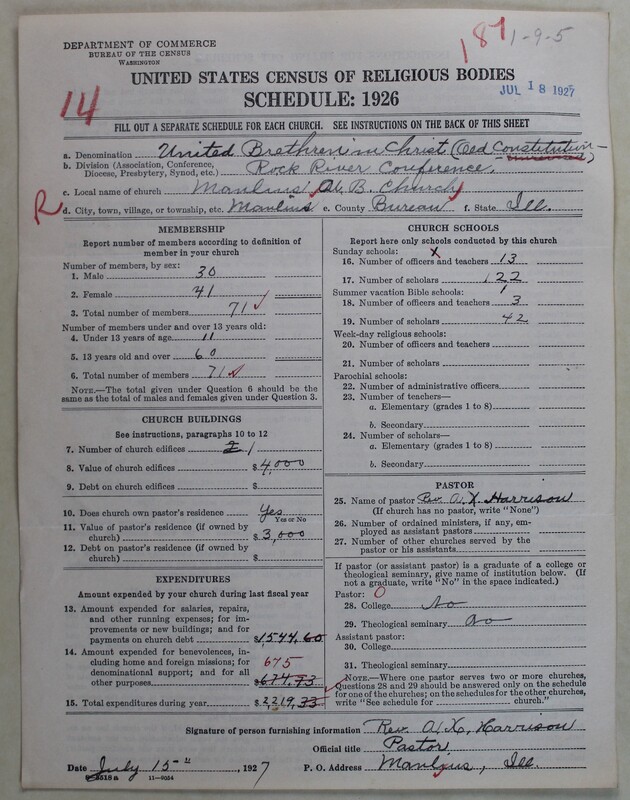 DEPARTMENT OF COMMERCE
BUREAU OF THE CENSUS
WASHINGTON
187 1-9-5
UNITED STATES CENSUS OF RELIGIOUS BODIES
SCHEDULE: 1926
JUL 18 1927
14
FILL OUT A SEPARATE SCHEDULE FOR EACH CHURCH. SEE INSTRUCTIONS ON THE BACK OF THIS SHEET
a. Denomination United Brethren in Christ (Old Constitution)
b. Division (Association, Conference, Diocese, Presbytery, Synod, etc.) Rock River Conference,
c. Local name of church Manlius, U. B. Church
R
d. City, town, village, or township, etc. Manlius e. County Bureau f. State Ill.
MEMBERSHIP
Report number of members according to definition of
member in your church
Number of members, by sex:
1. Male 30
2. Female 41
3. Total number of members 71
Number of members under and over 13 years old:
4. Under 13 years of age 11
5. 13 years old and over 60
6. Total number of members 71
NOTE.—The total given under Question 6 should be
the same as the total of males and females given under Question 3.
CHURCH BUILDINGS
See instructions, paragraphs 10 to 12
7. Number of church edifices 2 1
8. Value of church edifices $4,000
9. Debt on church edifices $
10. Does church own pastor's residence Yes
Yes or No
11. Value of pastor's residence (if owned by
church) $3,000
12. Debt on pastor's residence (if owned by
church) $
EXPENDITURES
Amount expended by your church during last fiscal year
13. Amount expended for salaries, repairs,
and other running expenses; for im-
provements or new buildings; and for
payments on church debt $1544.60
14. Amount expended for benevolences, in-
cluding home and foreign missions; for
denominational support; and for all
other purposes 675
$674.73
15. Total expenditures during year $2,219.33
CHURCH SCHOOLS
Report here only schools conducted by this church
Sunday schools: X
16. Number of officers and teachers 13
17. Number of scholars 122
Summer vacation Bible schools: 1
18. Number of officers and teachers 3
19. Number of scholars 42
Week-day religious schools:
20. Number of officers and teachers
21. Number of scholars
Parochial schools:
22. Number of administrative officers
23. Number of teachers—
a. Elementary (grades 1 to 8)
b. Secondary
24. Number of scholars—
a. Elementary (grades 1 to 8)
b. Secondary
PASTOR
25. Name of pastor Rev. A. X. Harrison
(If church has no pastor, write "None")
26. Number of ordained ministers, if any, em-
ployed as assistant pastors
27. Number of other churches served by the
pastor or his assistants
If pastor (or assistant pastor) is a graduate of a college or
theological seminary, give name of institution below. (If
not a graduate, write "No" in the space indicated.)
Pastor: 0
28. College No
29. Theological seminary No
Assistant pastor:
30. College
31. Theological seminary
NOTE.—Where one pastor serves two or more churches,
Questions 28 and 29 should be answered only on the schedule
for one of the churches; on the schedules for the other churches,
write "See schedule for church."
Signature of person furnishing information Rev. A. X. Harrison
Official title Pastor
Date July 15", 1927 P. O. Address Manlius, Ill.
8518a 11-9054